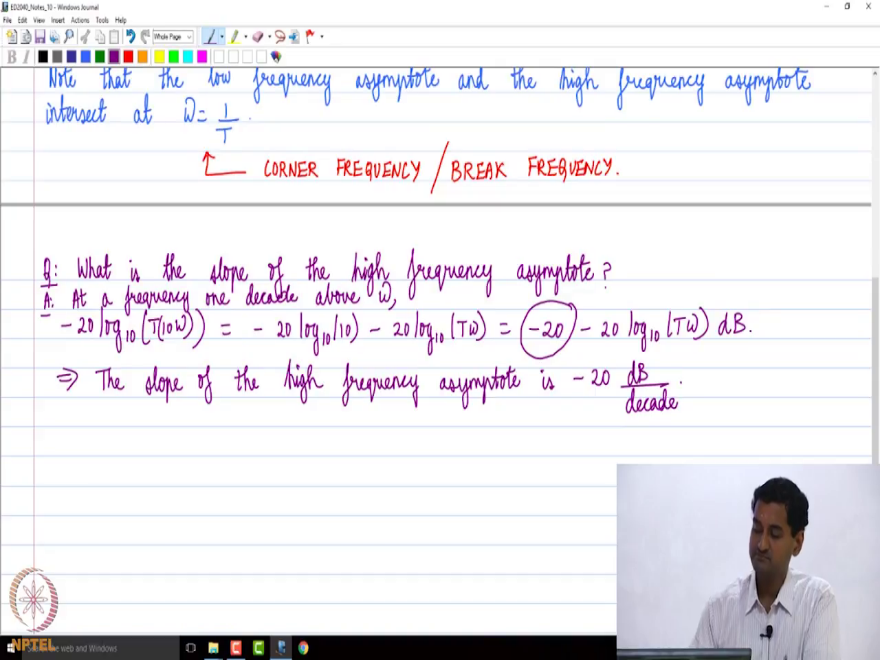 ED2040_Notes_10 - Windows Journal
File Edit View Insert Actions Tools Help
Whole Page
B I
Note that the low frequency asymptote and the high frequency asymptote
intersect at ω = 1/T.
CORNER FREQUENCY / BREAK FREQUENCY.
Q: What is the slope of the high frequency asymptote?
A: At a frequency one decade above ω,
-20 log₁₀ (T(10ω)) = - 20 log₁₀(10) - 20 log₁₀ (Tω) = -20 - 20 log₁₀ (Tω) dB.
⇒ The slope of the high frequency asymptote is -20 dB/decade.
NPTEL
the web and Windows